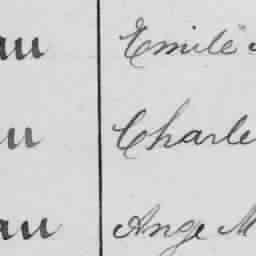 au Emile
au Charle
au Ange M